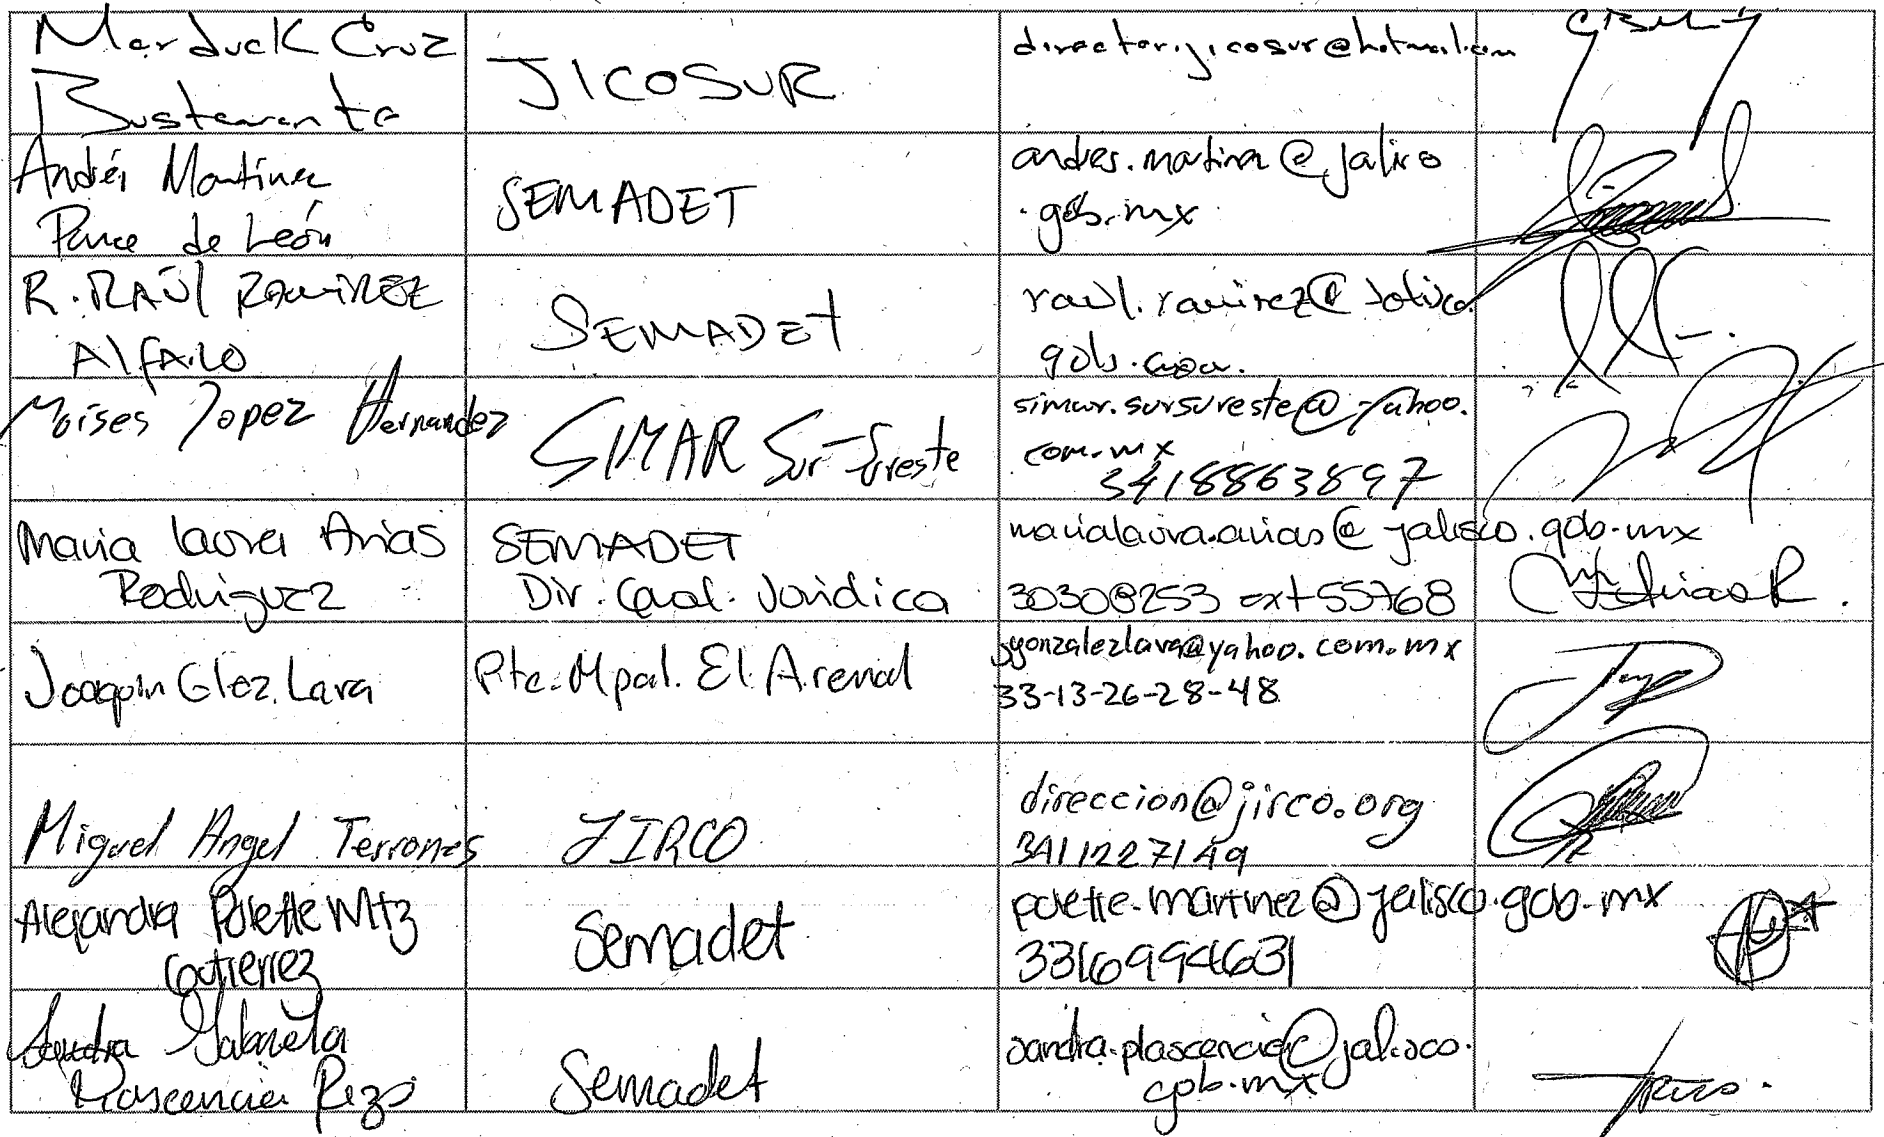 Marduck Cruz
Bustamante
JICOSUR
director.jicosur@hotmail.com
Andrés Martínez
Ponce de León
SEMADET
andres.martinez@jalisco
.gob.mx
R. RAÚL RAMIREZ
AlfARO
SEMADEt
raul.ramirez@jalisco.
gob.
Moises Lopez Hernandez
SIMAR Sur-Sureste
simar.sursureste@yahoo.
com.mx
34188863897
Maria Laura Arias
Rodriguez
SEMADET
Dir. Gral. Jurídica
marialaura.arias@jalisco.gob.mx
30308253 ext 55768
Joaquin Glez. Lara
Pte. Mpal. El Arenal
jgonzalezlara@yahoo.com.mx
33-13-26-28-48
Miguel Angel Terrones
JIRCO
direccion@jirco.org
3411227149
Alejandra Polette Mtz
Gutierrez
Semadet
polette.martinez@jalisco.gob.mx
3316994631
Sandra Gabriela
Plascencia Rizo
Semadet
sandra.plascencia@jalisco.
gob.mx